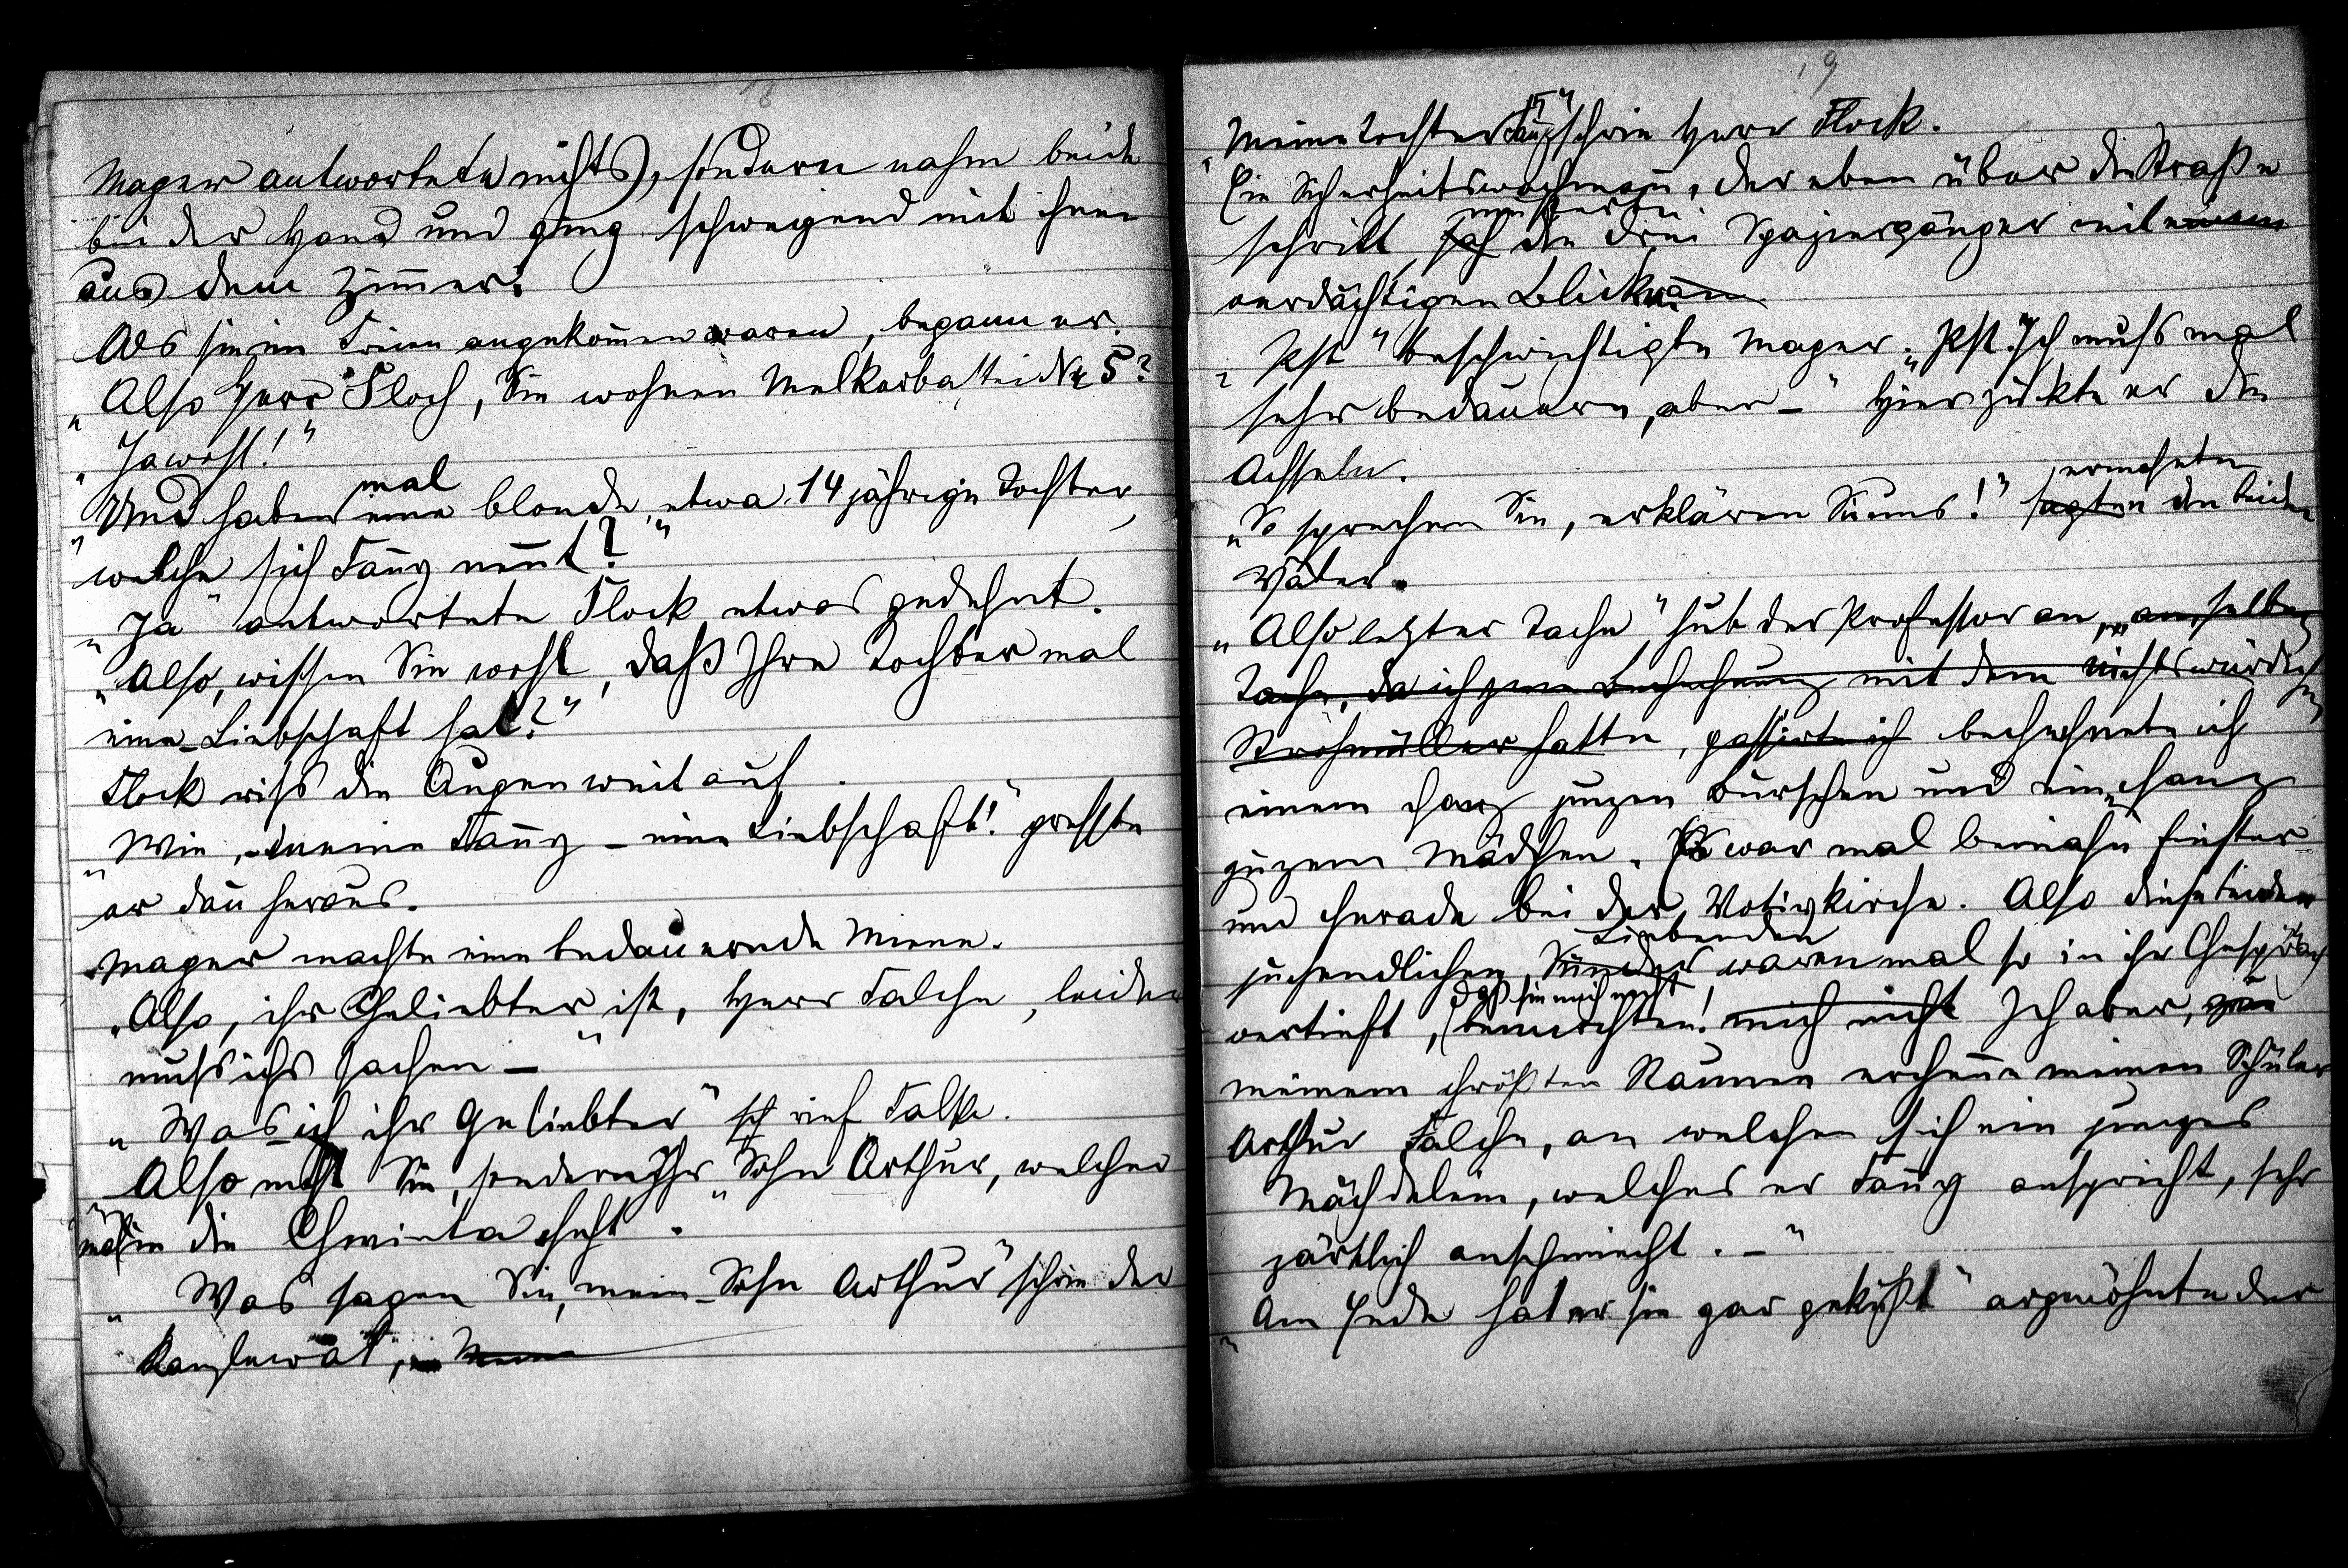 18
Mager antwortete nichts, sondern nahm beide
bei der Hand und ging schweigend mit ihnen
aus dem Zimmer.
Als sie im Freien angekom̅en waren, begann er.
„Also Herr Floch, Sie wohnen Melkerbastei Nr 5?
„Jawohl!“
„Und haben mal eine blonde, etwa 14 jährige Tochter,
welche sich Fan̅y nen̅t?“
„Ja“ antwortete Flock etwas gedehnt.
„Also, wissen Sie wohl, daß Ihre Tochter mal
eine Liebschaft hat?“
Flock riss die Augen weit auf.
„Wie, – meine Fan̅y – eine Liebschaft!“ presste
er dan̅ heraus.
Mager machte eine bedauernde Miene.
„Also, ihr Cheliebter ist, Herr Falche, leider
muss ichs sachen –“
„Was ich ihr Geliebter“ rief Falke.
„Also nicht Sie, sondern Ihr Sohn Arthur, welcher
mal in die Chwinta cheht.“
„Was sagen Sie, mein Sohn Arthur“ schrie der
Kanzleirat,
19
„Meine Tochter Fan̅y“ schrie Herr Flock.
Ein Sicherheitswachman̅, der eben über die Straße
schritt, musterte die drei Spaziergänger mit einem
verdächtigen Blick an
„Pst“ beschwichtigte Mager. „Pst. Ich muss mal
sehr bedauern, aber –“ Hier zuckte er die
Achseln.
„So sprechen Sie, erklären Sie uns!“ sagten ermahnten die beiden
Väter.
„Also letzter Tache“ hub der Professor an, „am selben
Tache, da ich jene Bechechnung mit dem nichtswürdichen
Strohmüller hatte, passirte ich bechechnete ich
einem chanz jungen Burschen und einem chanz
jungem Mädchen. Es war mal beinahe finster
und cherade bei der Votivkirche. Also diese beiden
juchendlichen Sünder Liebenden waren mal so in ihr Chespräch
vertieft, daß sie mich nicht bemerchten! mich nicht Ich aber, zu
meinem chrößten Staunen erchen̅e meinen Schüler
Arthur Falche, an welchen sich ein junges
Mächdelein, welches er Fan̅y anspricht, sehr
zärtlich anschmiecht. –“
„Am Ende hat er sie gar geküßt“ argwöhnte der